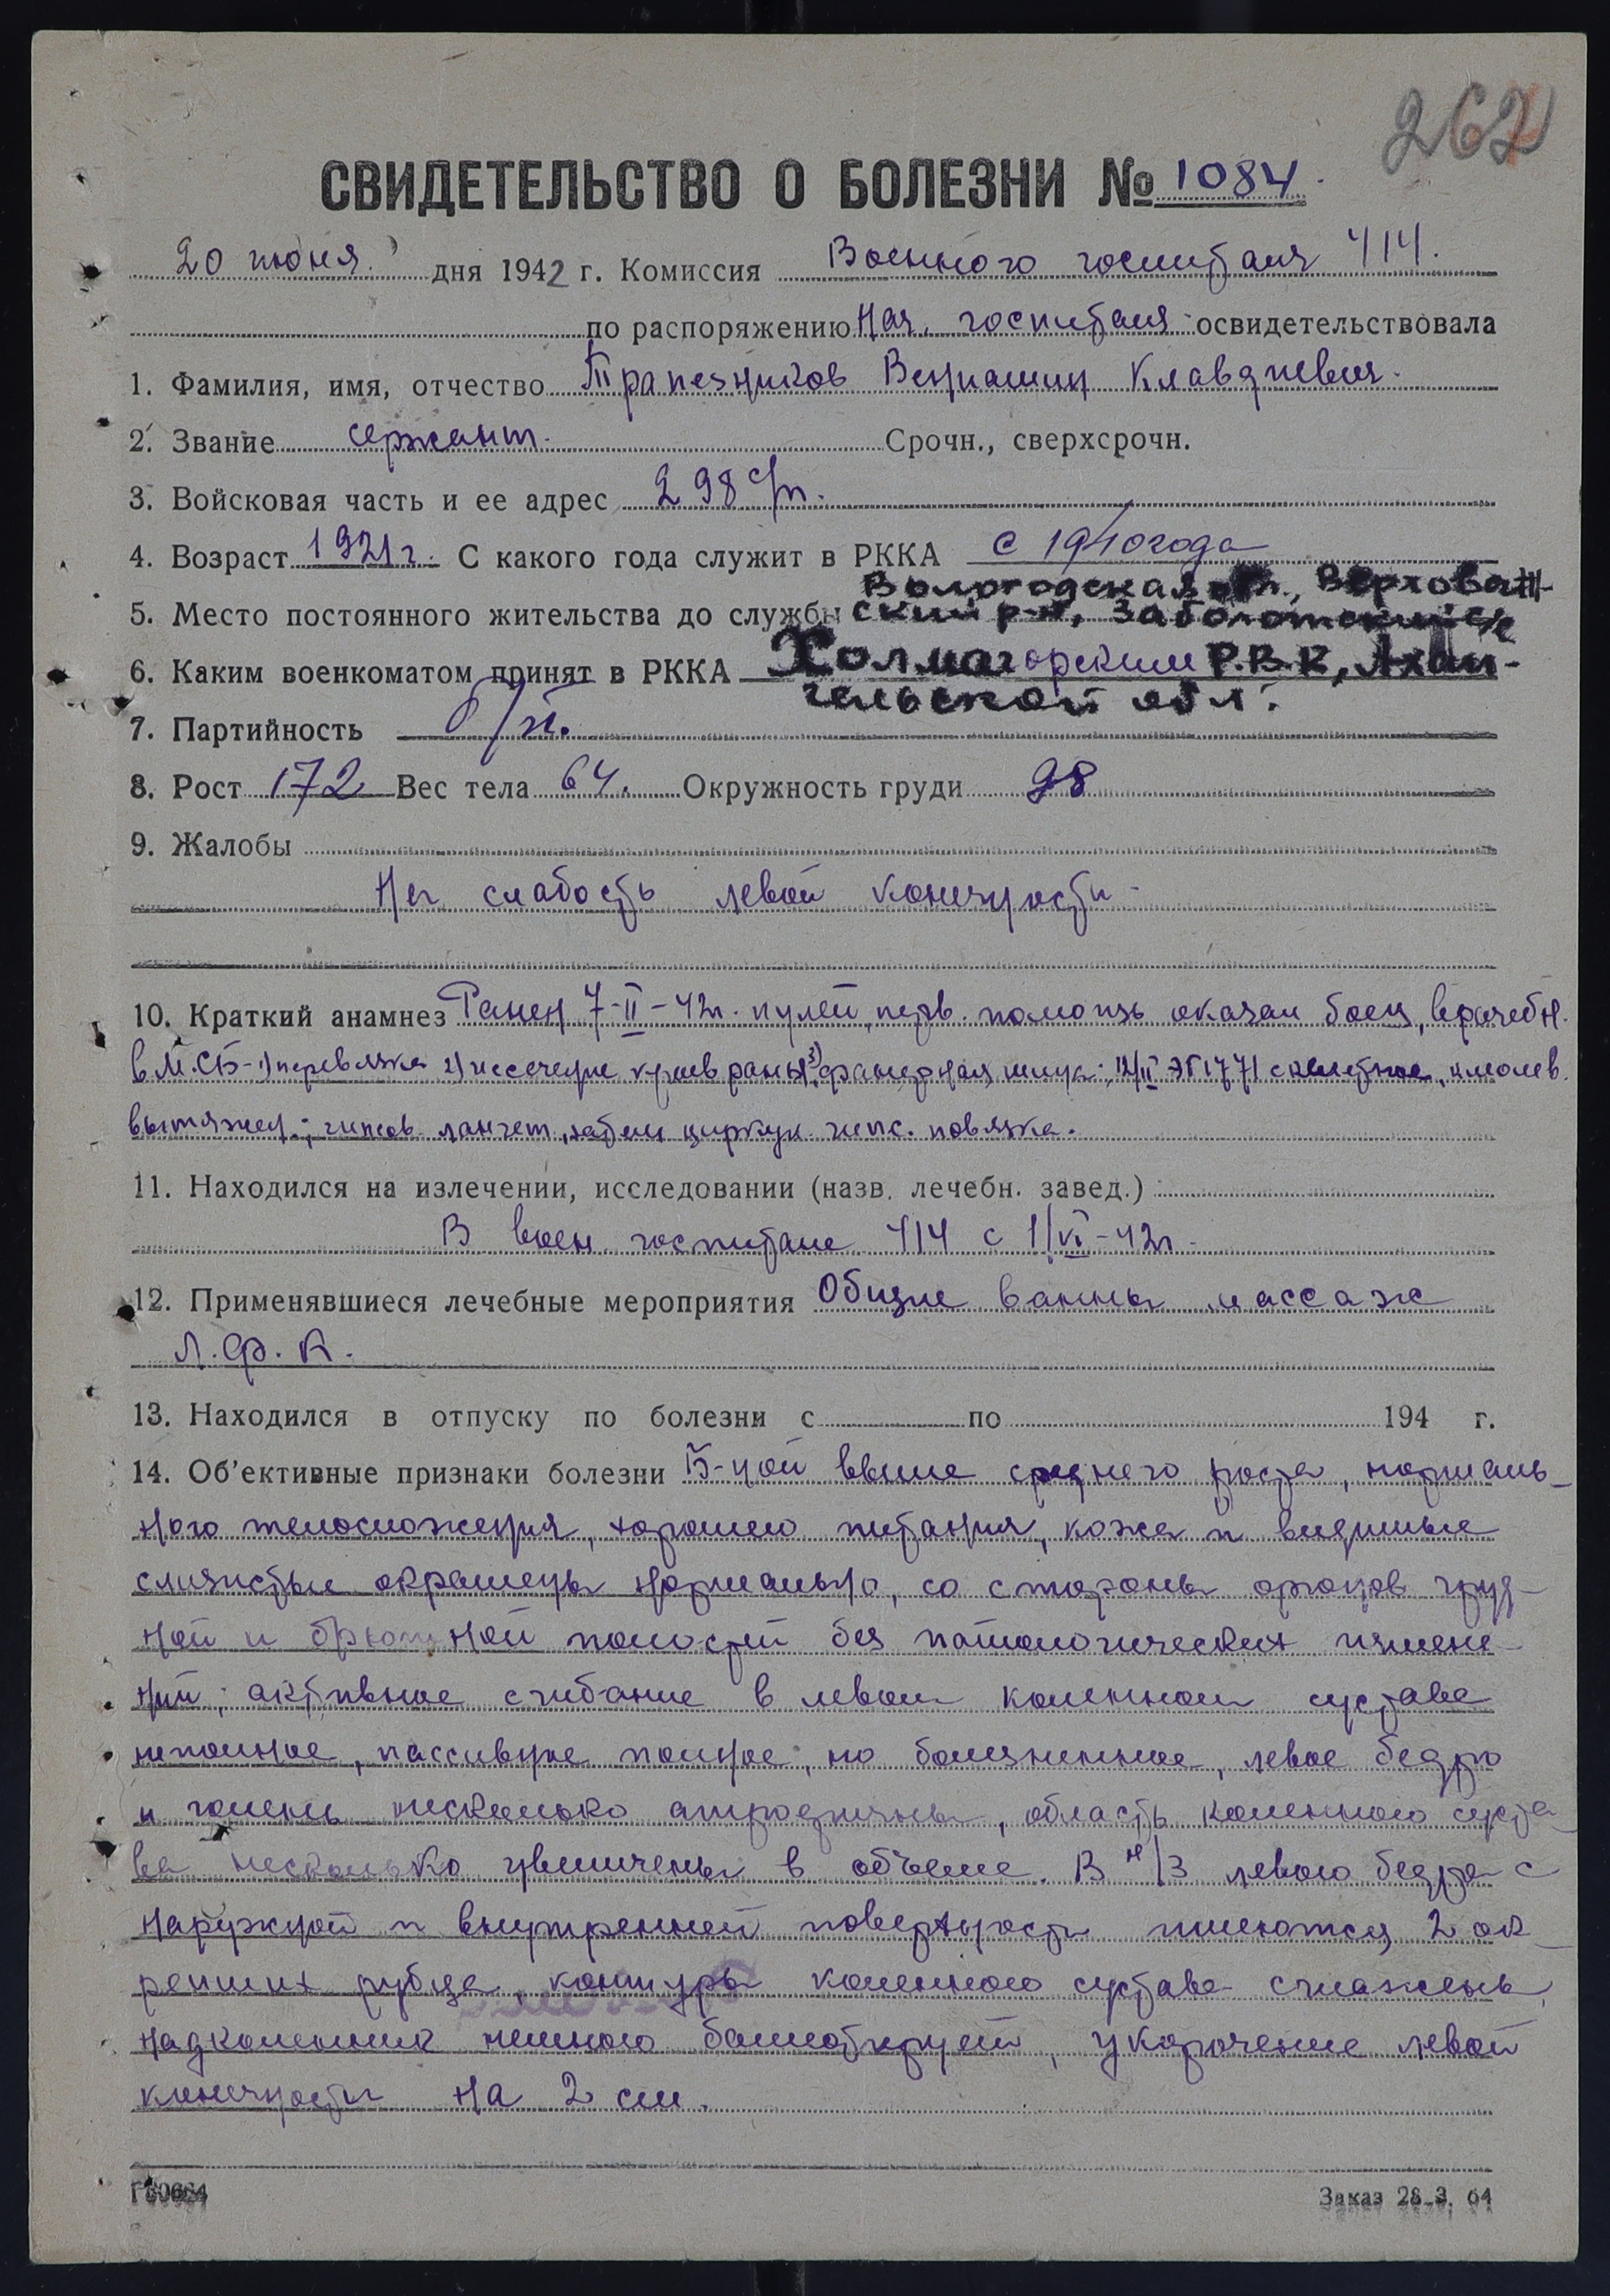 262
СВИДЕТЕЛЬСТВО О БОЛЕЗНИ № 1084.
20 июня дня 1942 г. Комиссия Военного госпиталя 414.
по распоряжению Нач. госпиталя освидетельствовала
1. Фамилия, имя, отчество Трапезников Вениамин Клавдиевич.
2. Звание сержант. Срочн., сверхсрочн.
3. Войсковая часть и ее адрес 298 с/п.
4. Возраст 1921 г. С какого года служит в РККА с 1940 года
Вологодская обл., Верховаж-
5. Место постоянного жительства до службы ский р-н, Заболотский с/с
6. Каким военкоматом принят в РККА Холмагорским Р.В.К, Архан-
гельской обл.
7. Партийность б/п.
8. Рост 172 Вес тела 64. Окружность груди 98
9. Жалобы
На слабость левой конечности
10. Краткий анамнез Ранен 7-II-42г. пулей, перв. помощь оказал боец, врачебн.
в М.СБ - 1) перевязка 2) иссечение краев раны 3) фанерная шина; 12/II ЭГ 1771 скелетное, клеолев.
вытяжен.; гипсов. лангет, затем циркул. гипс. повязка.
11. Находился на излечении, исследовании (назв. лечебн. завед.)
В воен. госпитале 414 с 1/VI-42г.
12. Применявшиеся лечебные мероприятия Общие ванны массаж
Л.Ф.К.
13. Находился в отпуску по болезни с по 194 г.
14. Об'ективные признаки болезни Б-ной выше среднего роста, нормаль-
ного телосложения, хорошего питания, кожа и видимые
слизистые окрашены нормально, со стороны органов груд-
ной и брюшной полостей без патологических измене-
ний; активное сгибание в левом коленном суставе
неполное, пассивное полное, но болезненное, левое бедро
и голень несколько атрофичны, область коленного суста-
ва несколько увеличены в объеме. В н/3 левого бедра с
наружной и внутренней поверхности имеются 2 ок-
репших рубца, контуры коленного сустава сглажены,
надколенник немного баллотирует, укорочение левой
конечности на 2 см.
Г80664
Заказ 28.3. 64